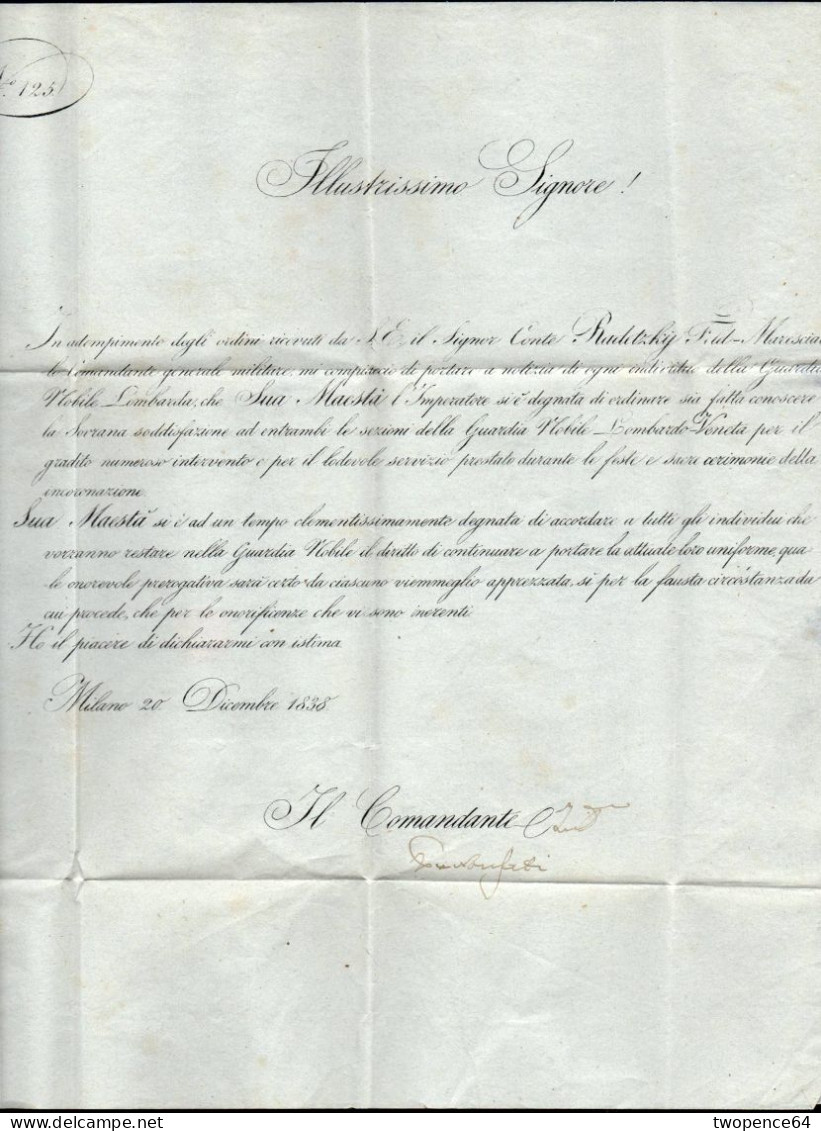 N.° 125.
Illustrissimo Signore!
In adempimento degli ordini ricevuti da S. E. il Signor Conte Radetzky F.=ld-Marescial
lo Comandante generale militare, mi compiaccio di portare a notizia di ogni individuo della Guardia
Nobile Lombarda, che Sua Maestà l'Imperatore si è degnata di ordinare sia fatta conoscere
la Sovrana soddisfazione ad entrambi le sezioni della Guardia Nobile Lombardo-Veneta per il
gradito numeroso intervento e per il lodevole servizio prestato durante le feste e sacre cerimonie della
incoronazione.
Sua Maestà si è ad un tempo clementissimamente degnata di accordare a tutti gli individui che
vorranno restare nella Guardia Nobile il diritto di continuare a portare la attuale loro uniforme, qua
le onorevole prerogativa sarà certo da ciascuno viemmeglio apprezzata, si per la fausta circostanza da
cui procede, che per le onorificenze che vi sono inerenti.
Ho il piacere di dichiararmi con istima
Milano 20. Dicembre 1838.
Il Comandante
twopence64